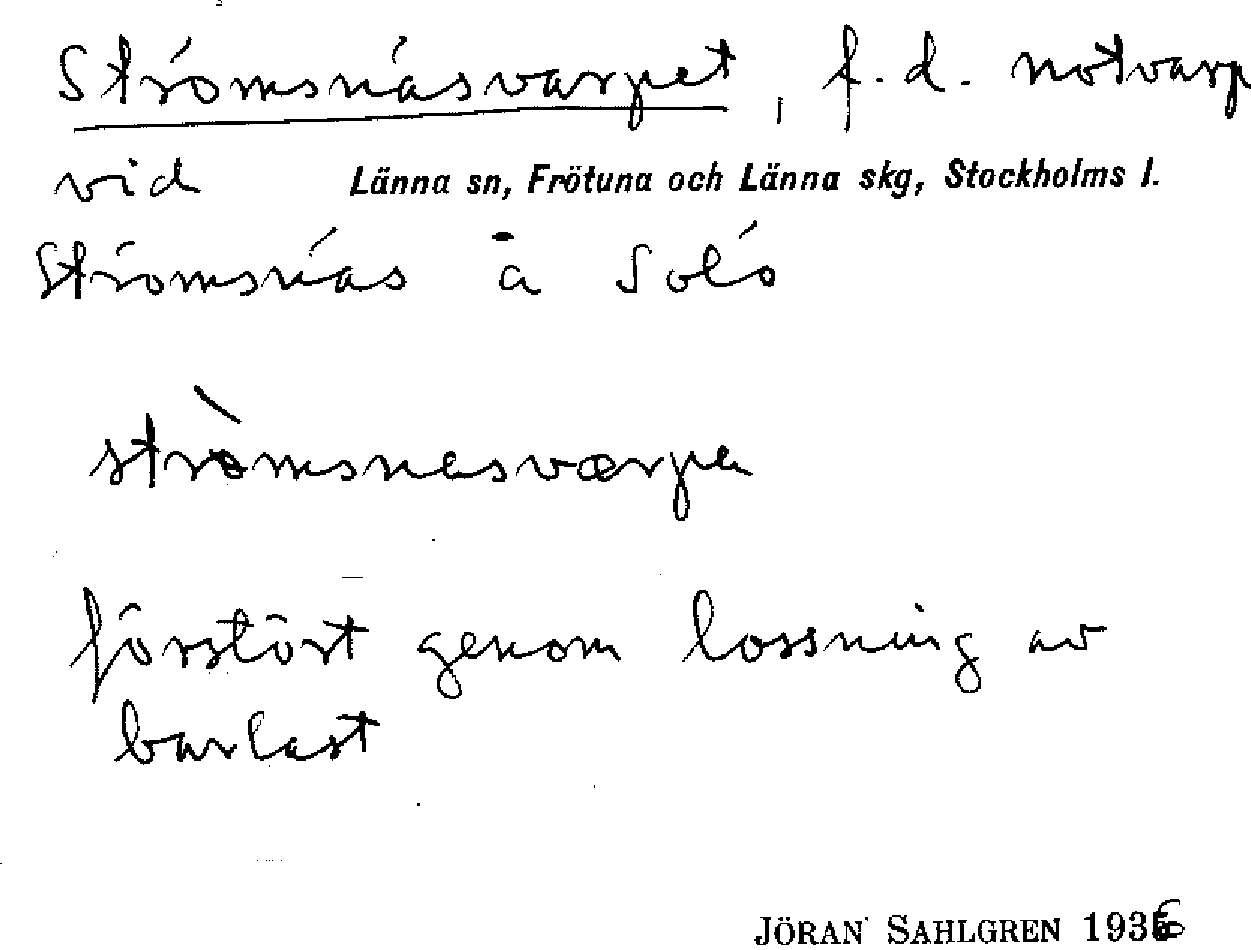 Strömsnäsvarpet, f.d. notvarp
vid Länna sn, Frötuna och Länna skg, Stockholms l.
Strömsnäs å Solö
strömsnesværpa
förstört genom lossning av
barlast
JÖRAN SAHLGREN 1936